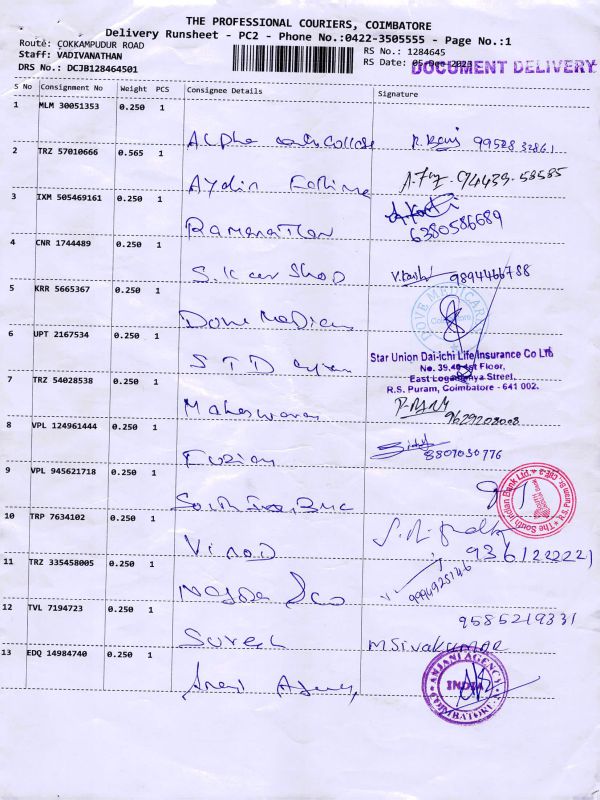 THE PROFESSIONAL COURIERS, COIMBATORE
Delivery Runsheet - PC2 - Phone No.:0422-3505555 - Page No.:1
Route: COKKAMPUDUR ROAD
Staff: VADIVANATHAN
DRS No.: DCJB128464501
RS No.: 1284645
RS Date: 05-Dec-2023
DOCUMENT DELIVERY
S No Consignment No Weight PCS Consignee Details Signature
1 MLM 30051353 0.250 1
Alpha College
2 TRZ 57010666 0.565 1
Aydin Fatima
3 IXM 505469161 0.250 1
Ramanathan 6380586689
4 CNR 1744489 0.250 1
S.K Car Shop 9894466788
5 KRR 5665367 0.250 1
Dove Medicare
DOVE MEDICARE
6 UPT 2167534 0.250 1
S T D
Star Union Dai-ichi Life Insurance Co Ltd
No. 39,40 1st Floor,
East Logamanya Street,
R.S. Puram, Coimbatore - 641 002.
7 TRZ 54028538 0.250 1
Maheswaran 9629208008
8 VPL 124961444 0.250 1
Fusion 8807030776
9 VPL 945621718 0.250 1
South Indian Bank
The South Indian Bank Ltd.
R.S. Puram
10 TRP 7634102 0.250 1
Vinod 936122221
11 TRZ 335458005 0.250 1
9994925146
12 TVL 7194723 0.250 1
9585219331
Suresh M Sivakumar
13 EDQ 14984740 0.250 1
Anjani Agency
ANJANI AGENCY
INDIA
COIMBATORE